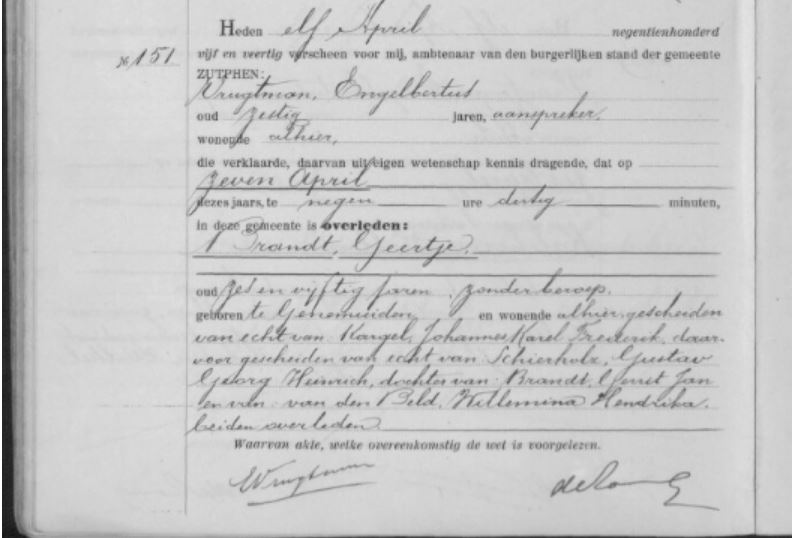 Heden elf April negentienhonderd
№ 151 vijf en veertig verscheen voor mij, ambtenaar van den burgerlijken stand der gemeente
ZUTPHEN:
Vrugtman, Engelbertus
oud zestig jaren, aanspreker,
wonende alhier,
die verklaarde, daarvan uit eigen wetenschap kennis dragende, dat op
zeven April
dezes jaars, te negen ure dertig minuten,
in deze gemeente is overleden:
Brandt, Geertje,
oud zes en vijftig jaren, zonder beroep.
geboren te Genemuiden, en wonende alhier, gescheiden
van echt van Kargel, Johannes Karel Frederik, daar-
voor gescheiden van echt van Schierholz, Gustav
Georg Heinrich, dochter van: Brandt, Gerrit Jan
en van: van den Beld, Willemina Hendrika,
beiden overleden.
Waarvan akte, welke overeenkomstig de wet is voorgelezen.
EVrugtman